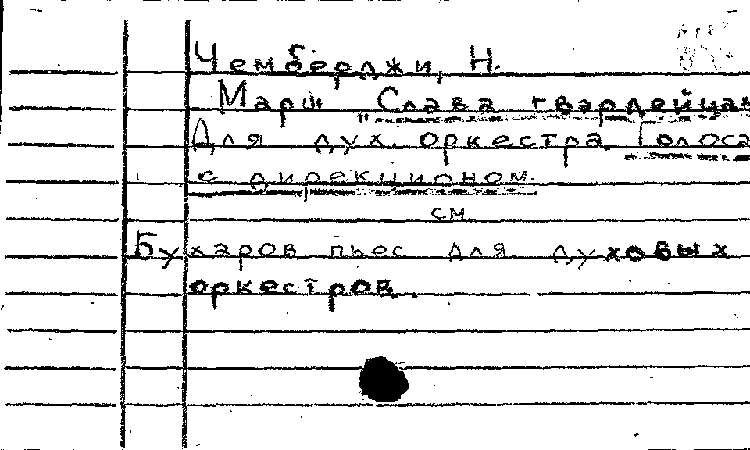 Чемберджи, Н.
Марш "Слава гвардейцам
Для дух. оркестра. Голоса
с дирекционом.
см
Бухаров пьес для духовых
оркестров.